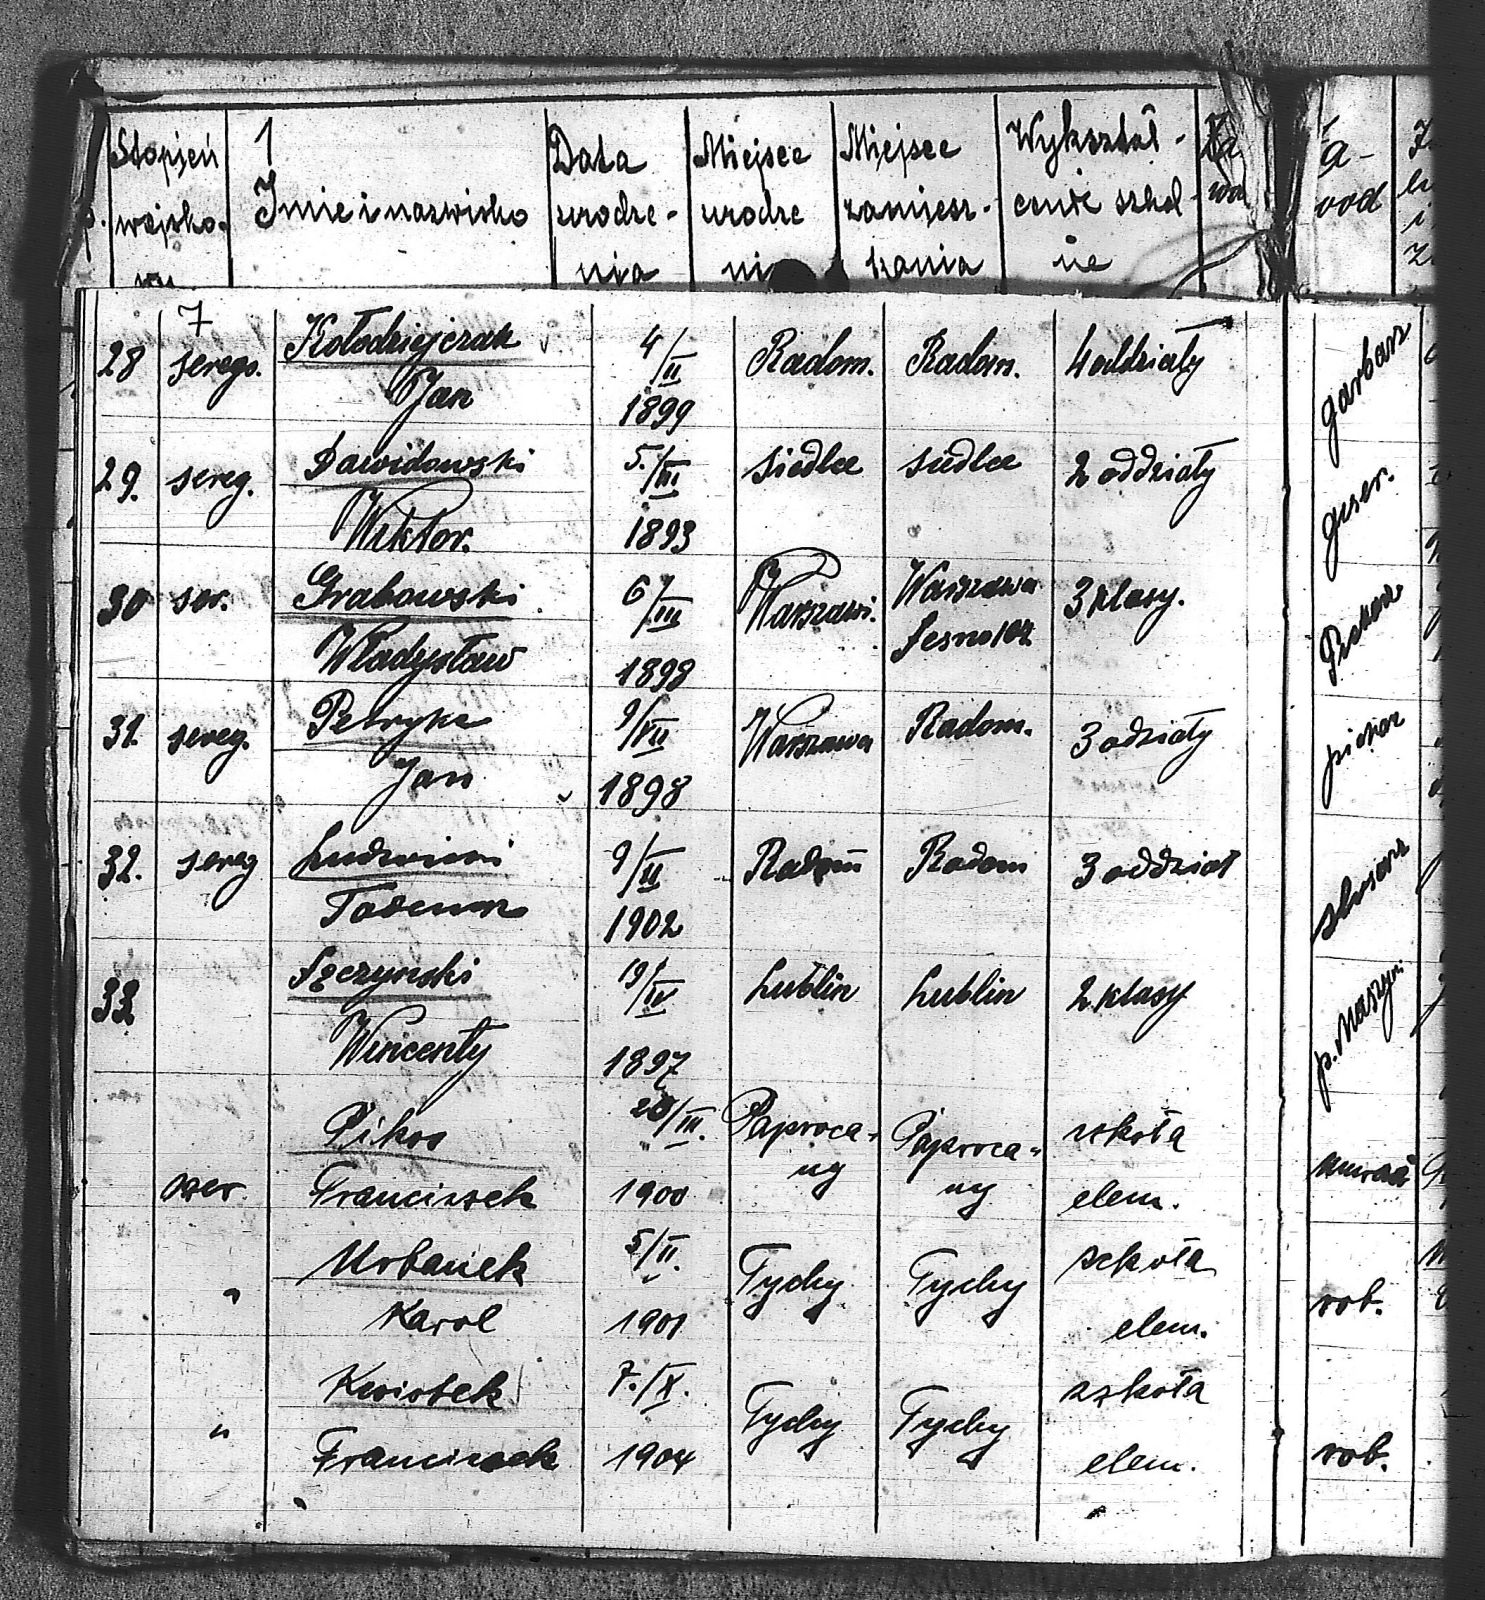 Stopień wojsko-
1 Imię i nazwisko
Data urodze- nia
Miejsce urodze
Miejsce zamiesz- kania
Wykształ- cenie szkol- ne
7
28 szereg. Kołodziejczak Jan 4/II 1899 Radom. Radom. 4 oddziały garbarz
29. szereg. Dawidowski Wiktor. 5./III 1893 Siedlce Siedlce 2 oddziały giser.
30 szer. Grabowski Władysław 6/III 1898 Warszawa Leszno 3 klasy.
31. szereg. Jan 9/VII 1898 Warszawa Radom. 3 odziały
32. szereg 9/II 1902 Radom Radom 3 oddział ślusarz
33 Wincenty 19/IV 1897 Lublin Lublin 2 klasy
szer. Pikos Franciszek /III. 1900 Paproca- ny Paproca- ny szkoła elem.
" Urbanek Karol 5/II. 1901 Tychy Tychy szkoła elem. rob.
" Franciszek 7./X. 1904 Tychy Tychy szkoła elem. rob.